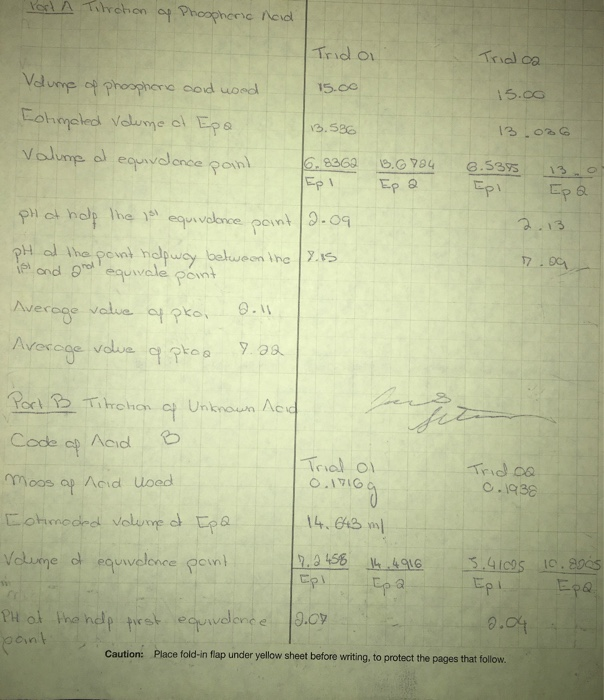 Part A Titration of Phosphoric Acid
Trial 01 Trial 02
Volume of phosphoric acid used 15.00 15.00
Estimated Volume at Ep2 13.536 13.026
Volume at equivalence point 6.8362 13.6724 6.5395 13.0
Ep1 Ep2 Ep1 Ep2
pH at half the 1st equivalence point 2.09 2.13
pH at the point halfway between the 7.15
1st and 2nd equivale point
Average value of pka1 2.11
Average value of pka2 7.22
Part B Titration of Unknown Acid
Code of Acid B
Trial 01 Trial 02
Mass of Acid Used 0.1716g 0.1938
Estimated volume at Ep2 14.643 ml
Volume at equivalence point 7.2458 14.4916 5.41025 10.8205
Ep1 Ep2 Ep1 Ep2
PH at the half first equivalence 2.07 - 2.04
point
Caution: Place fold-in flap under yellow sheet before writing, to protect the pages that follow.